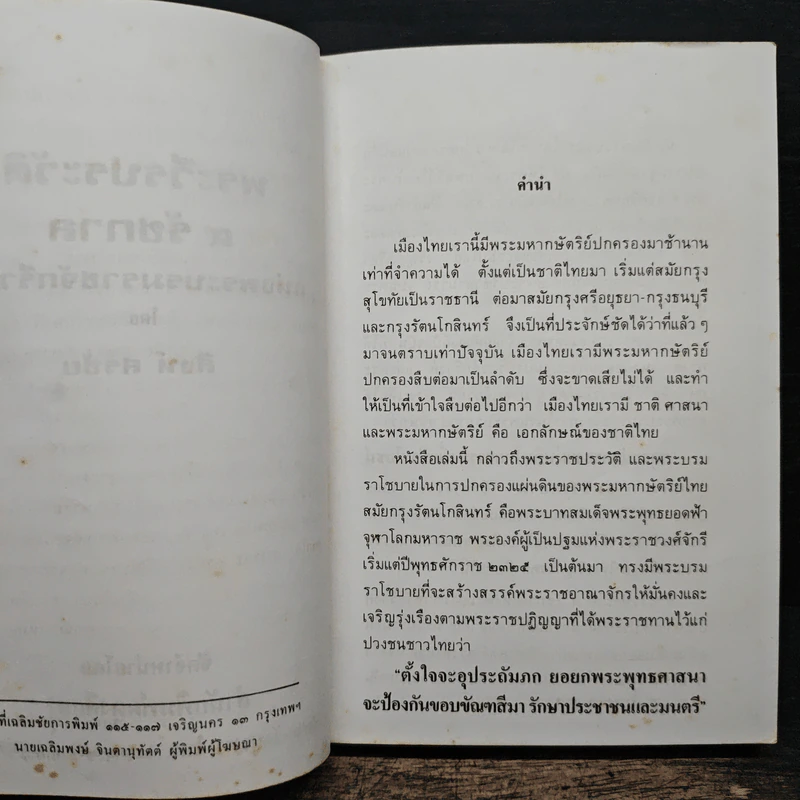 ที่เฉลิมชัยการพิมพ์ ๑๑๕-๑๑๗ เจริญนคร ๑๓ กรุงเทพฯ
นายเฉลิมพงษ์ จินดานุทัตต์ ผู้พิมพ์ผู้โฆษณา
คำนำ
เมืองไทยเรานี้มีพระมหากษัตริย์ปกครองมาช้านาน
เท่าที่จำความได้ ตั้งแต่เป็นชาติไทยมา เริ่มแต่สมัยกรุง
สุโขทัยเป็นราชธานี ต่อมาสมัยกรุงศรีอยุธยา-กรุงธนบุรี
และกรุงรัตนโกสินทร์ จึงเป็นที่ประจักษ์ชัดได้ว่าที่แล้ว ๆ
มาจนตราบเท่าปัจจุบัน เมืองไทยเรามีพระมหากษัตริย์
ปกครองสืบต่อมาเป็นลำดับ ซึ่งจะขาดเสียไม่ได้ และทำ
ให้เป็นที่เข้าใจสืบต่อไปอีกว่า เมืองไทยเรามี ชาติ ศาสนา
และพระมหากษัตริย์ คือ เอกลักษณ์ของชาติไทย
หนังสือเล่มนี้ กล่าวถึงพระราชประวัติ และพระบรม
ราโชบายในการปกครองแผ่นดินของพระมหากษัตริย์ไทย
สมัยกรุงรัตนโกสินทร์ คือพระบาทสมเด็จพระพุทธยอดฟ้า
จุฬาโลกมหาราช พระองค์ผู้เป็นปฐมแห่งพระราชวงศ์จักรี
เริ่มแต่ปีพุทธศักราช ๒๓๒๕ เป็นต้นมา ทรงมีพระบรม
ราโชบายที่จะสร้างสรรค์พระราชอาณาจักรให้มั่นคงและ
เจริญรุ่งเรืองตามพระราชปฏิญญาที่ได้พระราชทานไว้แก่
ปวงชนชาวไทยว่า
"ตั้งใจจะอุปะถัมภก ยอยกพระพุทธศาสนา
จะป้องกันขอบขัณฑสีมา รักษาประชาชนและมนตรี"